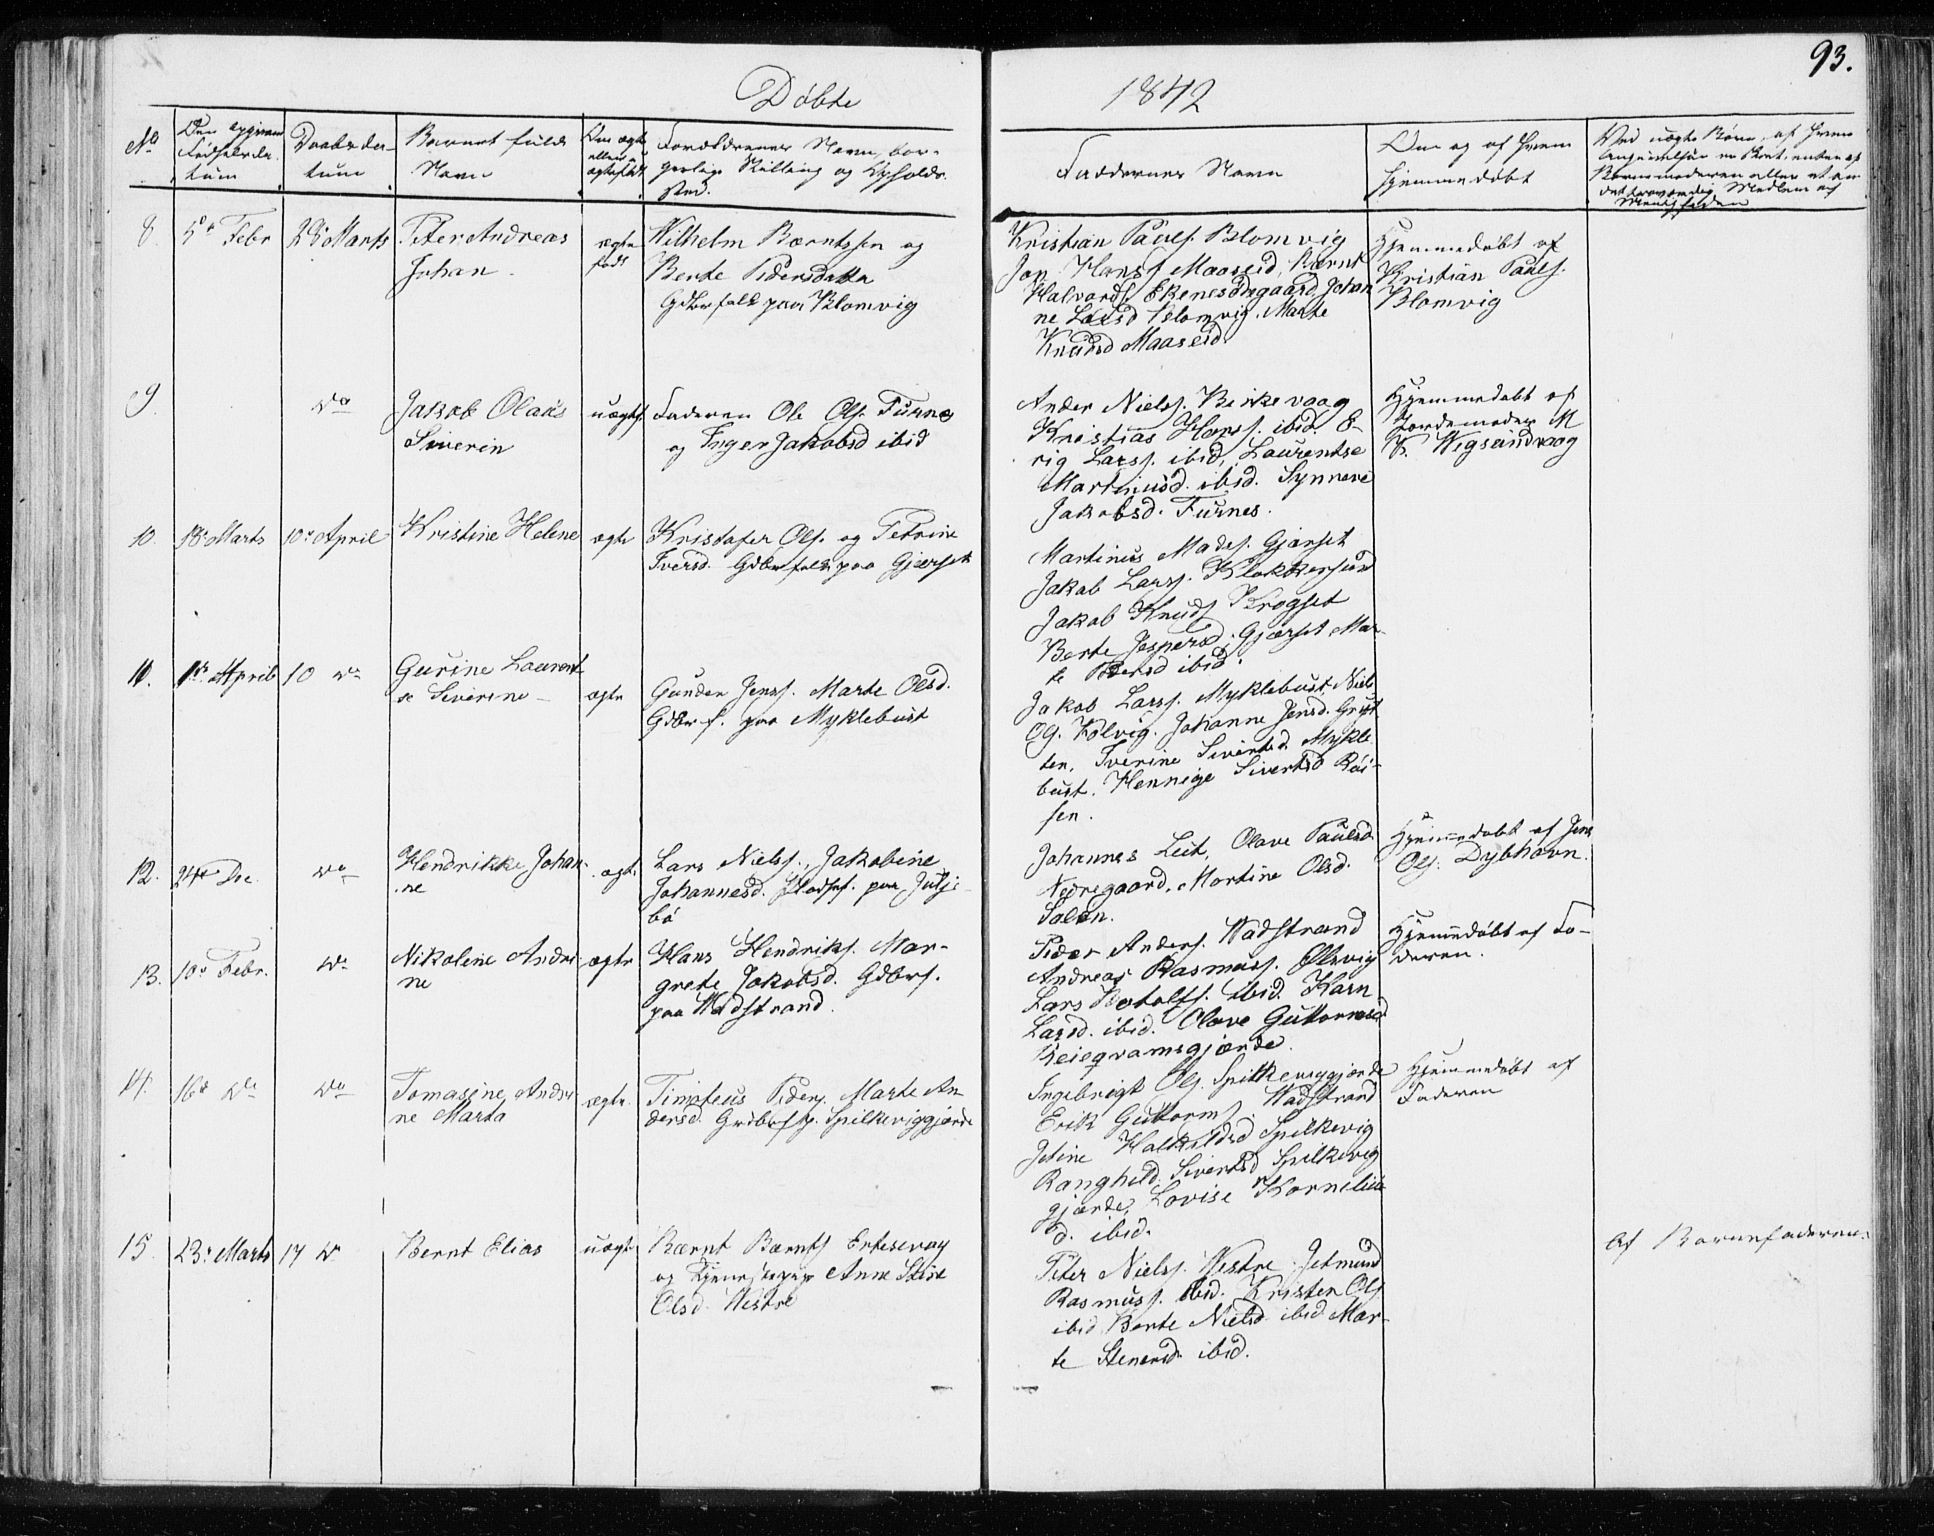 93.
Døbte 1842
No
Den opgivne
Fødselsda-
tum
Daabsda-
tum
Barnets fulde
Navn
Om ægte
eller u-
ægtefødt
Forældrenes Navn, bor-
gerlige Stilling og Opholds-
sted.
Faddernes Navn
Om og af hvem
hjemmedøbt
8. 5te Febr 28 Marts Peter Andreas
Johan
ægte
født
Wilhelm Bærntssen og
Berte Pedersdatter
Gdbrfolk paa Blomvig
Kristian Pauls. Blomvig
Jon Hanss. Maaseid, Bærnt
Halvords. Ekenesødegaard, Johan
ne Larsd Blomvig. Marte
Knudsd Maaseid.
Hjemmedøbt af
Kristian Pauls.
Blomvig
9 do Jakob Olaus
Siverin
uægte
Faderen Ole Ols. Furnes
og Inger Jakobsd ibid
Ander Nielss. Birkevaag
Kristian Hanss. ibid. E-
rig Larss. ibid, Laurentse
Martinusd. ibid. Synneve
Jakobsd. Furnes.
Hjemmedøbt af
Jordemoder M
K. Vegsundvaag
10. 18 Marts 10 April Kristine Helene ægte
Kristofer Ols. og Petrine
Iversd. Gdbrfolk paa Gjærset
Martinus Madss. Gjærset
Jakob Larss. Klokkersund
Jakob Knuds Krogset
Berte Jespersd. Gjærset Mar-
te Pedersd ibid.
11. 1te April 10 do Gurine Laurent
se Siverine
ægte
Gunder Jenss. Marte Olsd.
Gdbrf. paa Myklebust
Jakob Larss. Myklebust, Niels
Og. Kolvig. Johanne Jensd. Gryt
ten, Iverine Sivertsd. Mykle
bust. Hennige Sivertsd Røi-
sen.
12. 24de De. do Hendrikke Johan-
ne
ægte
Lars Nielss. Jakobine
Johannesd. Pladsf. paa Jutje
bø
Johannes Leit, Olave Paulsd
Nedregaard, Martine Olsd.
Salen.
Hjemmedøbt af Jens
Ols. Dybhavn.
13. 10 Febr. do Nikoline Andri-
ne
ægte
Hans Hendriks. Mar-
grete Jakobsd. Gdbrf.
paa Wadstrand.
Peder Anders. Wadstrand
Andreas Rasmuss. Olsvig
Lars Botolfs. ibid. Karn
Larsd. ibid. Olave Guttormsd
Reiegramsgjærde.
Hjemmedøbt af Fa-
deren.
14. 16de De do Tomasine Andri
ne Marta
ægte
Timoteus Peders. Marte An
dersd. Gdbrf p. Spilkeviggjærde
Ingebrigt Ols. Spilkeviggjærde
Erik Guttorms. Wadstrand
Jetine Halkildsd Spilkevig
Ranghild Sivertsd Spilkevig
gjærde, Lovise Kornelius
d. ibid.
Hjemmedøbt af
Faderen
15. 23 Marts 17 do Bernt Elias uægte
Bærnt Bærnts Ertesvag
og Anne Stine
Olsd. Westre
Peter Nielss. Westre. Jetmund
Rasmuss. ibid. Kristen Ols
ibid Berte Nielsd ibid Mar-
te Stenersd ibid.
Af Barnefaderen.